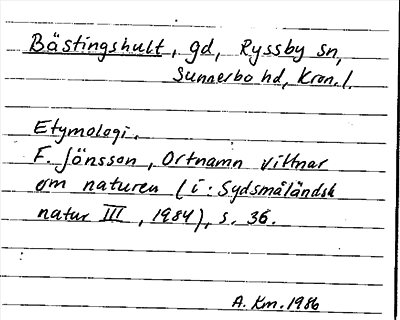 Bästingshult, gd, Ryssby sn,
Sunnerbo hd, Kron. l.
Etymologi.
F. Jönsson, Ortnamn vittnar
om naturen (i: Sydsmåländsk
natur III, 1984), s. 36.
A. Km. 1986